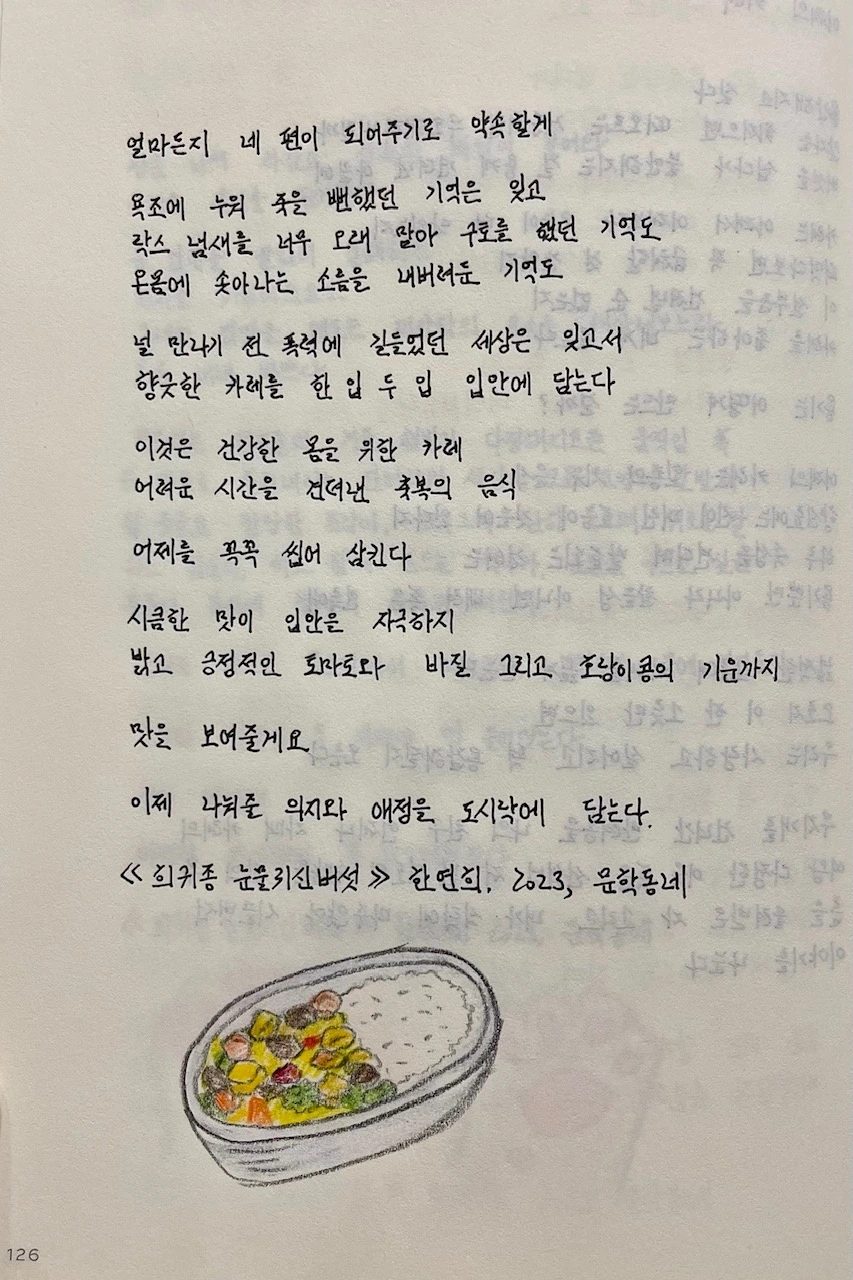 얼마든지 네 편이 되어주기로 약속할게
욕조에 누워 죽을 뻔했던 기억은 잊고
락스 냄새를 너무 오래 맡아 구토를 했던 기억도
온몸에 솟아나는 소름을 내버려둔 기억도
널 만나기 전 폭력에 길들었던 세상은 잊고서
향긋한 카레를 한 입 두 입 입안에 담는다
이것은 건강한 몸을 위한 카레
어려운 시간을 견뎌낸 축복의 음식
어제를 꼭꼭 씹어 삼킨다
시큼한 맛이 입안을 자극하지
밝고 긍정적인 토마토와 바질 그리고 호랑이콩의 기운까지
맛을 보여줄게요
이제 나눠줄 의지와 애정을 도시락에 담는다.
≪희귀종 눈물귀신버섯≫ 한연희, 2023, 문학동네
126